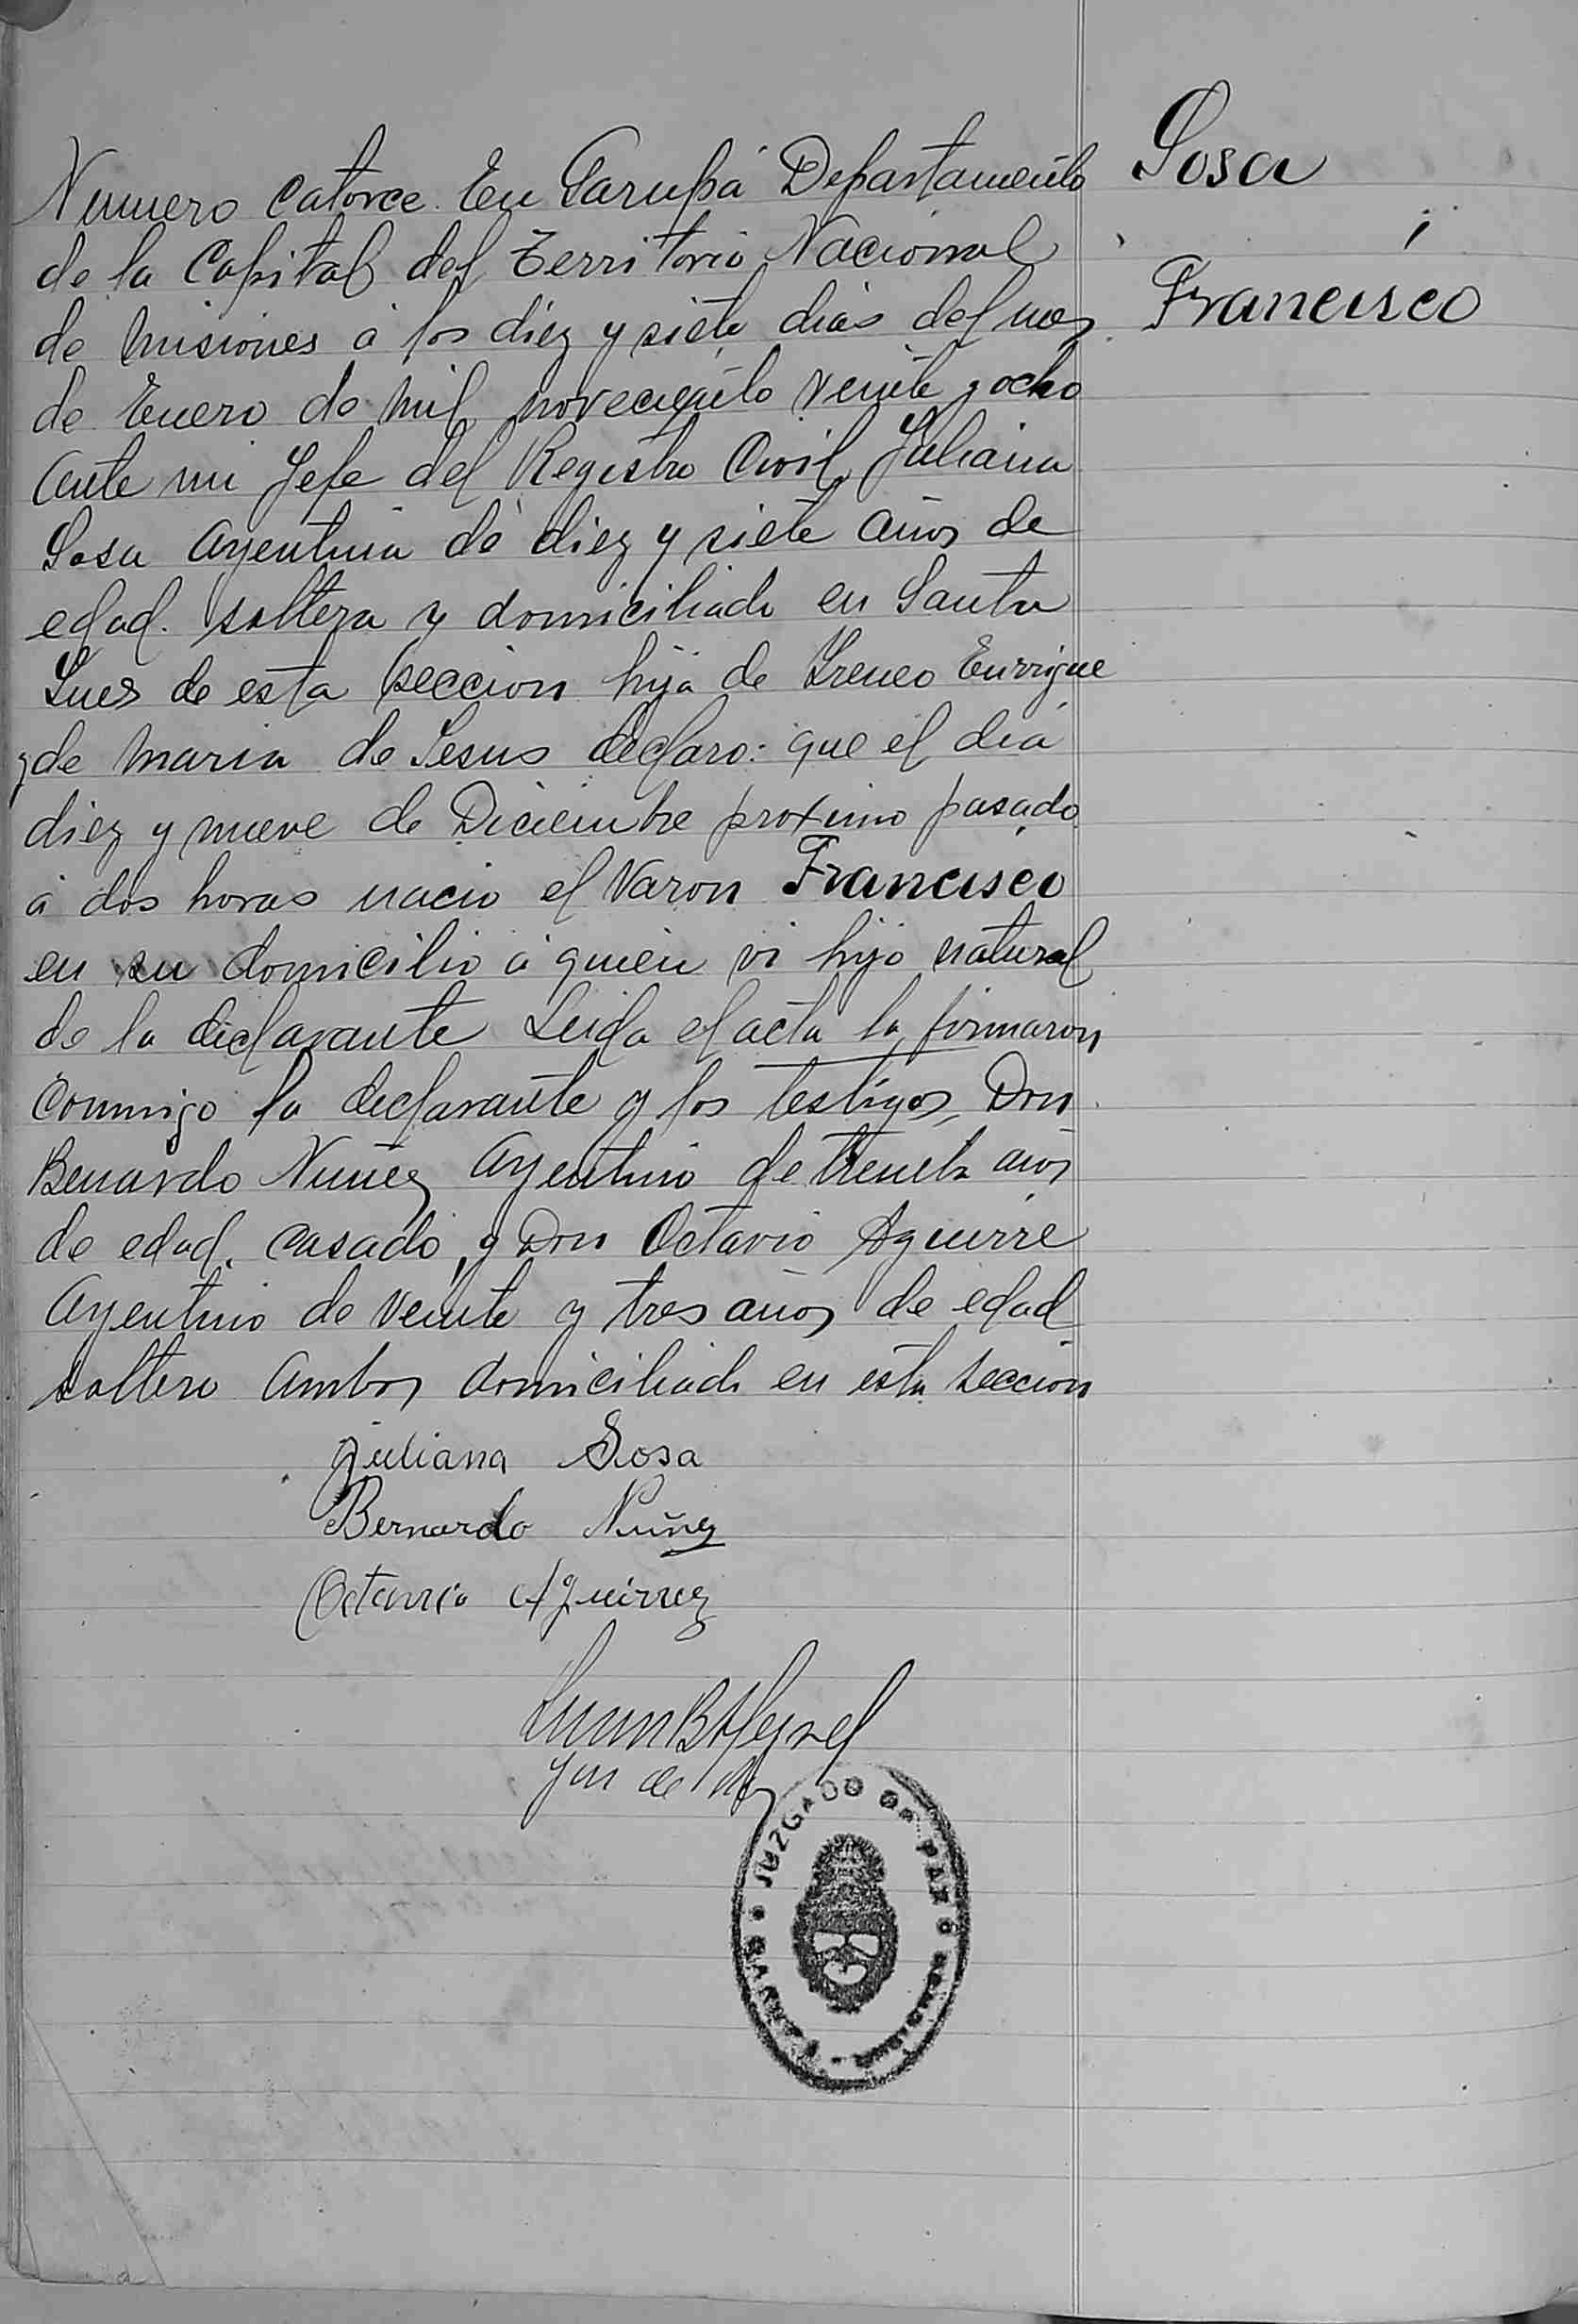 Sosa
Francisco
Numero catorce. En Garupá Departamento
de la Capital del Territorio Nacional
de Misiones á los diez y siete dias del mes
de Enero de mil noveciento veinte y ocho
Ante mi Jefe del Registro Civil Juliana
Sosa Argentina de diez y siete años de
edad. soltera y domiciliada en Santa
Ines de esta seccion hija de Ireneo Enrrique
y de Maria de Jesus declaro: que el dia
diez y nueve de Diciembre proximo pasado
á dos horas nacio el Varon Francisco
en su domicilio á quien vi hijo natural
de la declarante Leida el acta la firmaron
conmigo la declarante y los testigos, Don
Bernardo Nuñez Argentino de treinta años
de edad. casado, y Don Octavio Aguirre
Argentino de veinte y tres años de edad
soltero Ambos domiciliado en esta seccion
Juliana Sosa
Bernardo Nuñez
Octavio Aguirrez
Juan B
Juez de Paz
JUZGADO DE PAZ